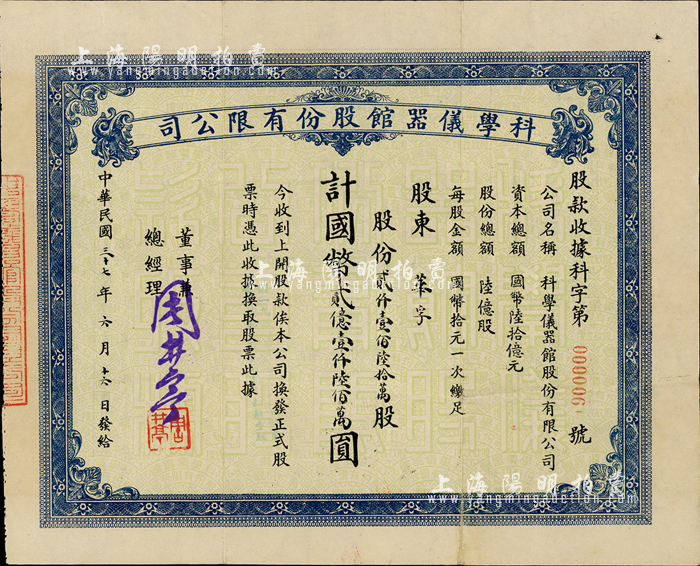 上海陽明拍賣
www.yangmingauction.com
科學儀器館股份有限公司
股款收據科字第000006號
公司名稱 科學儀器館股份有限公司
資本總額 國幣陸拾億元
股份總額 陸億股
每股金額 國幣拾元一次繳足
股東 華字
股份貳仟壹佰陸拾萬股
計國幣貳億壹仟陸佰萬圓
今收到上開股款俟本公司換發正式股
票時憑此收據換取股票此據
董事兼
總經理
周井亭
中華民國三十七年六月十六日發給
上海陽明拍賣
www.yangmingauction.com
上海陽明拍賣
www.yangmingauction.com